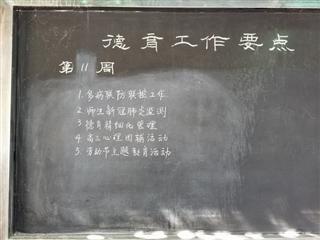 德育工作要点
第11周
1.多病联防联控工作
2.师生新冠肺炎监测
3.德育精细化管理
4.高三心理团辅活动
5.劳动节主题教育活动